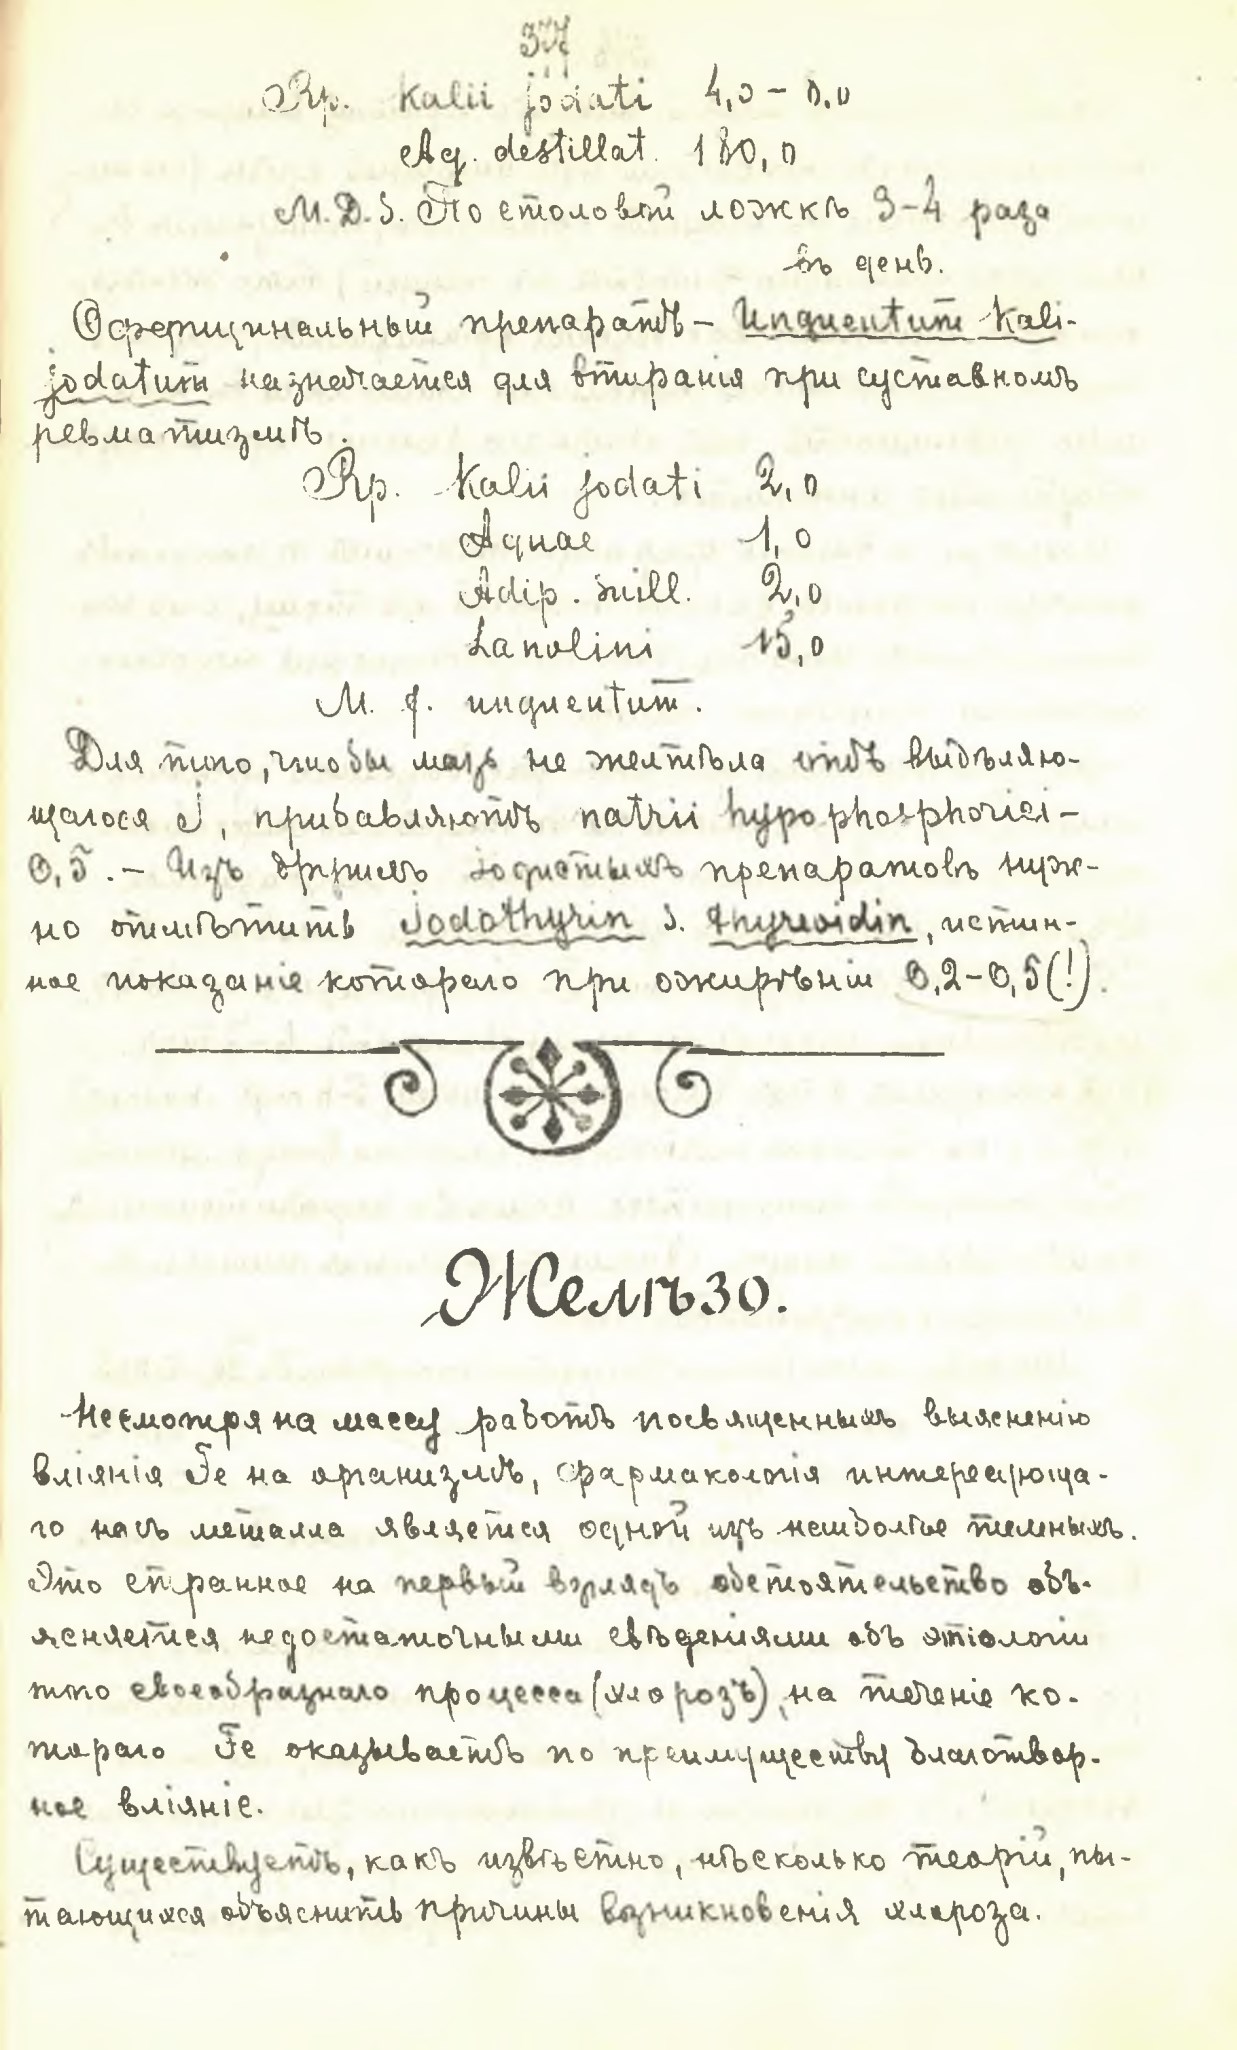 377
Rp. Kalii jodati 4,0 – 8,0
Aq. destillat. 180,0
M.D.S. По столовой ложкѣ 3–4 раза
въ день.
Оффицинальный препаратъ – Unguentum Kali-
jodatum назначается для втиранія при суставномъ
ревматизмѣ.
Rp. Kalii jodati 2,0
Aquae 1,0
Adip. suill. 2,0
Lanolini 15,0
M. f. unguentum.
Для того, чтобы мазь не желтѣла отъ выдѣляю-
щагося J, прибавляютъ natrii hypophosphorici –
0,5. – Изъ другихъ іодистыхъ препаратовъ нуж-
но отмѣтить Jodothyrin s. thyreoidin, истин-
ное показаніе котораго при ожирѣніи 0,2–0,5(!).
Желѣзо.
Несмотря на массу работъ посвященныхъ выясненію
вліянія Fe на организмъ, фармакологія интересующа-
го насъ металла является одной изъ наиболѣе темныхъ.
Это странное на первый взглядъ обстоятельство объ-
ясняется недостаточными свѣденіями объ этіологіи
того своеобразнаго процесса (хлорозъ), на теченіе ко-
тораго Fe оказываетъ по преимуществу благотвор-
ное вліяніе.
Существуетъ, какъ извѣстно, нѣсколько теорій, пы-
тающихся объяснить причины возникновенія хлороза.